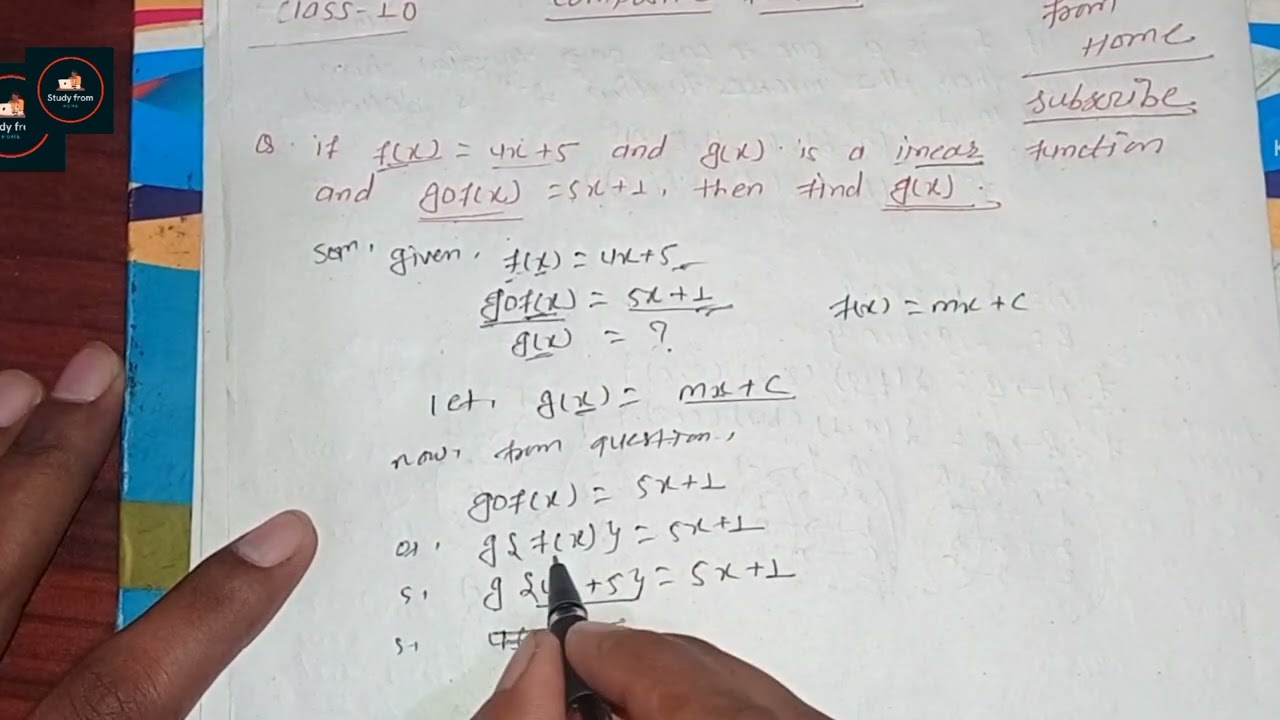 CLASS-10
from
Home
subscribe
Study from
HOME
Q. if f(x) = 4x+5 and g(x) is a linear function
and gof(x) = 5x+1, then find g(x).
Soln, given, f(x) = 4x+5
gof(x) = 5x+1
f(x) = mx + c
g(x) = ?
let, g(x) = mx + c
now, from question,
gof(x) = 5x+1
or, g{f(x)} = 5x+1
g{ +5} = 5x+1